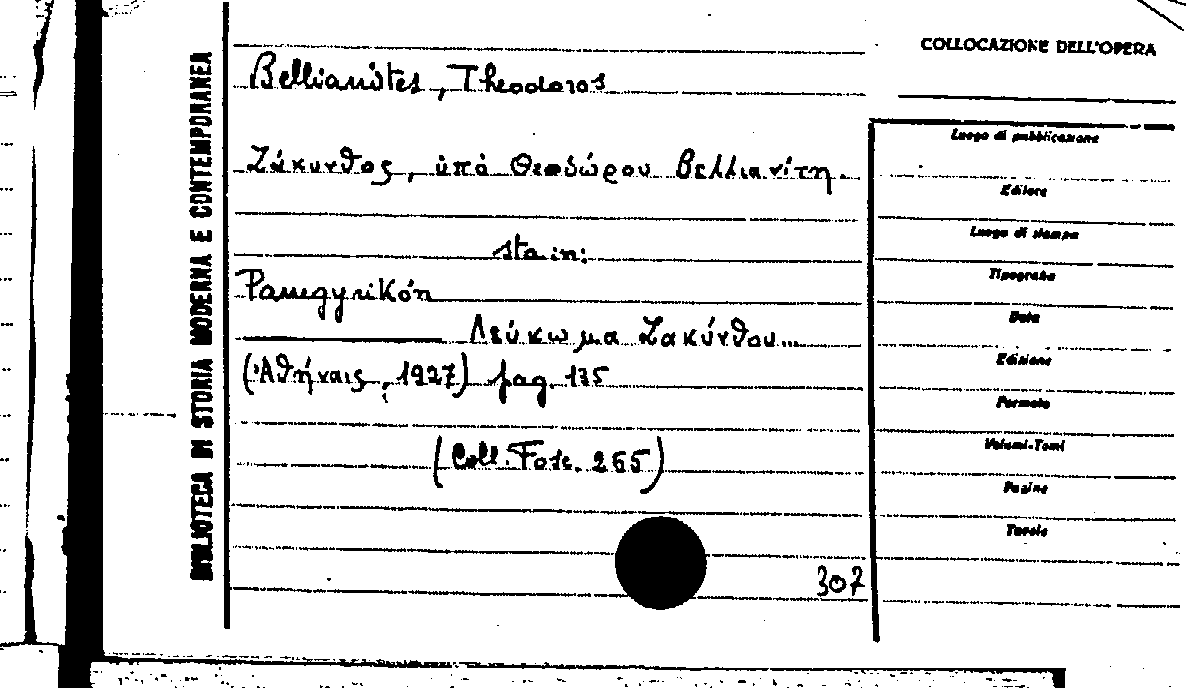 COLLOCAZIONE DELL'OPERA
BIBLIOTECA DI STORIA MODERNA E CONTEMPORANEA
Bellianítes, Theodoros
Ζάκυνθος, ὑπὸ Θεοδώρου Βελλιανίτη.
sta in:
Panegyrikón
Λεύκωμα Ζακύνθου...
(Ἀθήναις, 1927) pag. 135
(Coll. Fosc. 265)
307
Luogo di pubblicazione
Editore
Luogo di stampa
Tipografia
Data
Edizione
Formato
Volumi-Tomi
Pagine
Tavole